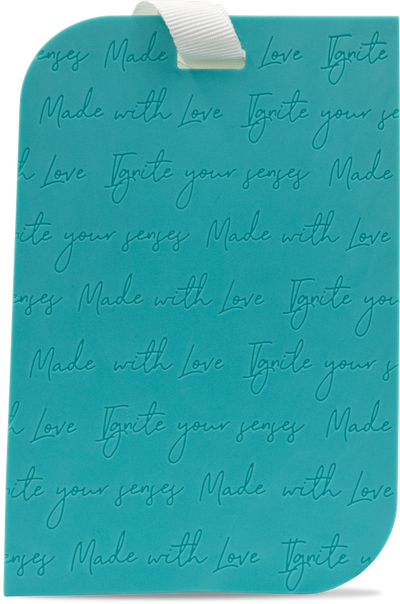 enses Made Love Ignite
Made with Love Ignite your se
h Love Ignite your senses Made
ite your senses Made with Love
enses Made with Love Ignite you
Made with Love Ignite your s
h Love Ignite your senses Made
ite your senses Made with Love
enses Made with Love Ignite y